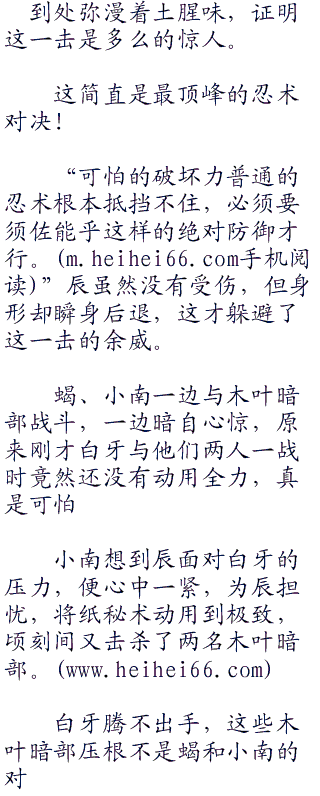 到处弥漫着土腥味，证明
这一击是多么的惊人。
这简直是最顶峰的忍术
对决！
“可怕的破坏力普通的
忍术根本抵挡不住，必须要
须佐能乎这样的绝对防御才
行。(m.heihei66.com手机阅
读)”辰虽然没有受伤，但身
形却瞬身后退，这才躲避了
这一击的余威。
蝎、小南一边与木叶暗
部战斗，一边暗自心惊，原
来刚才白牙与他们两人一战
时竟然还没有动用全力，真
是可怕
小南想到辰面对白牙的
压力，便心中一紧，为辰担
忧，将纸秘术动用到极致，
顷刻间又击杀了两名木叶暗
部。(www.heihei66.com)
白牙腾不出手，这些木
叶暗部压根不是蝎和小南的
对